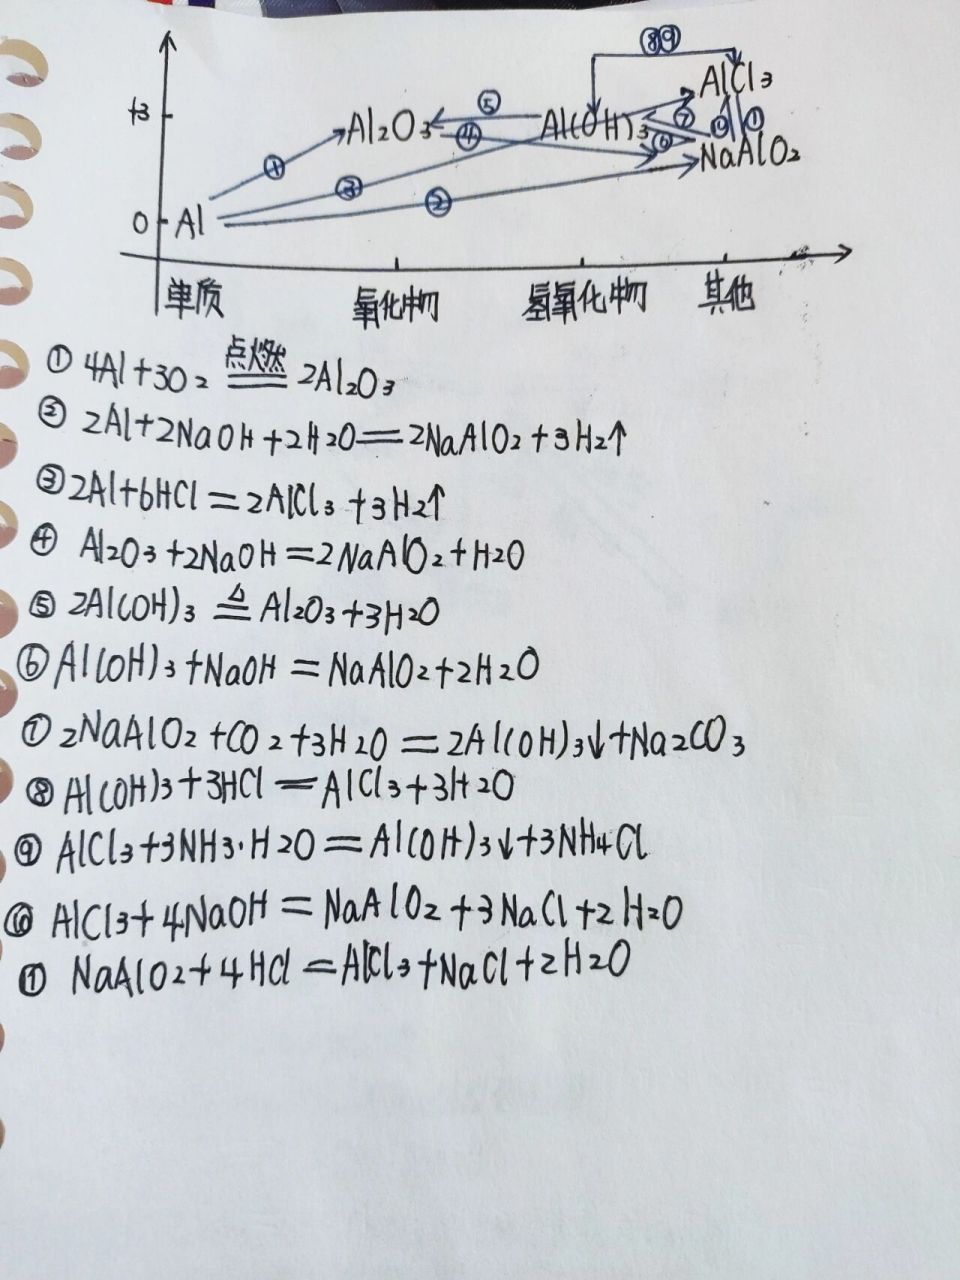 ⑧⑨
AlCl₃
+3 Al₂O₃ ⑤ Al(OH)₃ ⑦ ⑩ ⑪
④ ⑥ NaAlO₂
① ③ ②
0 Al
单质 氧化物 氢氧化物 其他
① 4Al+3O₂ 点燃══ 2Al₂O₃
② 2Al+2NaOH+2H₂O══2NaAlO₂+3H₂↑
③ 2Al+6HCl=2AlCl₃+3H₂↑
④ Al₂O₃+2NaOH=2NaAlO₂+H₂O
⑤ 2Al(OH)₃ ≜ Al₂O₃+3H₂O
⑥ Al(OH)₃+NaOH=NaAlO₂+2H₂O
⑦ 2NaAlO₂+CO₂+3H₂O=2Al(OH)₃↓+Na₂CO₃
⑧ Al(OH)₃+3HCl=AlCl₃+3H₂O
⑨ AlCl₃+3NH₃·H₂O=Al(OH)₃↓+3NH₄Cl
⑩ AlCl₃+4NaOH=NaAlO₂+3NaCl+2H₂O
⑪ NaAlO₂+4HCl=AlCl₃+NaCl+2H₂O